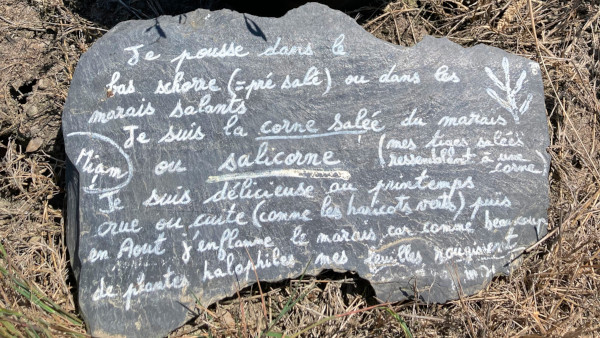 Je pousse dans le
bas schorre (= pré salé) ou dans les
marais salants
Je suis la corne salée du marais
Miam
ou salicorne (mes tiges salées
ressemblent à une
corne)
Je suis délicieuse au printemps
crue ou cuite (comme les haricots verts) puis
en Aout j'enflamme le marais car comme beaucoup
de plantes halophiles mes feuilles rougissent